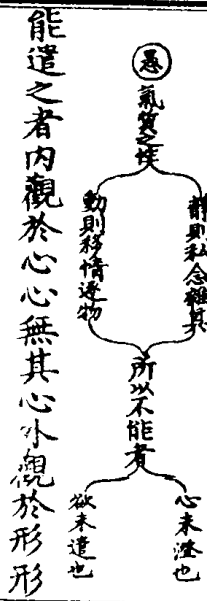 愚
氣質之性
靜則私念雜其
動則移情逐物
所以不能者
心未澄也
欲未遣也
能遣之者內觀於心心無其心外觀於形形